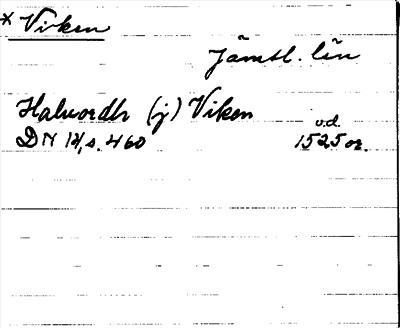 * Viken
Jämtl. län
Halwordh (j) Viken
DN 14, s. 460 v.d. 1525 or.